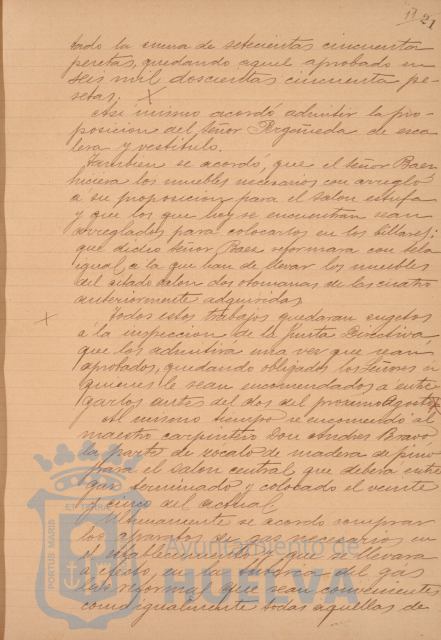 17 21
tado la suma de setecientas cincuenta
pesetas, quedando aquel aprobado en
seis mil doscientas cincuenta pe-
setas.
Así mismo acordó admitir la pro-
posicion del Señor Pergañeda de esca-
lera y vestíbulo.
Tambien se acordó, que el señor Baes
hiciera los muebles necesarios con arreglo
a su proposicion para el salon estufa
y que los que hoy se encuentran sean
arreglados para colocarlos en los billares;
que dicho Señor Baes reformara con tela
igual, a la que han de llevar los muebles
del citado salon dos otomanas de las cuatro
anteriormente adquiridas.
Todos estos trabajos quedaran sugetos
á la inspeccion de la Junta Directiva
que los admitirá una vez que sean
aprobados, quedando obligados los Señores á
quienes le sean encomendados á entre
garlos antes del dos del proximo Agosto
Al mismo tiempo se encomendó al
maestro carpintero Don Andres Bravo,
la parte de zocalo de madera de pino
para el salon central que deberá entre
gar terminado y colocado el veinte
y cinco del actual.
Ultimamente se acordo comprar
los aparatos de gas necesarios en
el establecimiento y que se llevara
a efecto en la tuberia del gas
las reformas que sean convenientes
como igualmente todas aquellas de
PORTUS MARIS
ET TERRAE
Ayuntamiento de
HUELVA